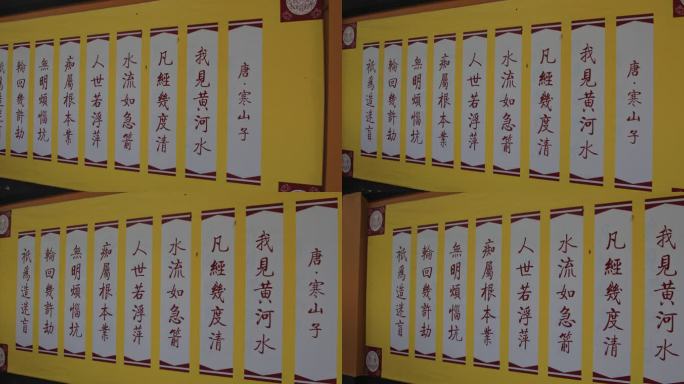 唐·寒山子
我見黄河水
凡經幾度清
水流如急箭
人世若浮萍
痴屬根本業
無明煩惱坑
輪回幾許劫
祇爲造迷盲
唐·寒山子
我見黄河水
凡經幾度清
水流如急箭
人世若浮萍
痴屬根本業
無明煩惱坑
輪回幾許劫
祇爲造迷盲
唐·寒山子
我見黄河水
凡經幾度清
水流如急箭
人世若浮萍
痴屬根本業
無明煩惱坑
輪回幾許劫
祇爲造迷盲
我見黄河水
凡經幾度清
水流如急箭
人世若浮萍
痴屬根本業
無明煩惱坑
輪回幾許劫
祇爲造迷盲